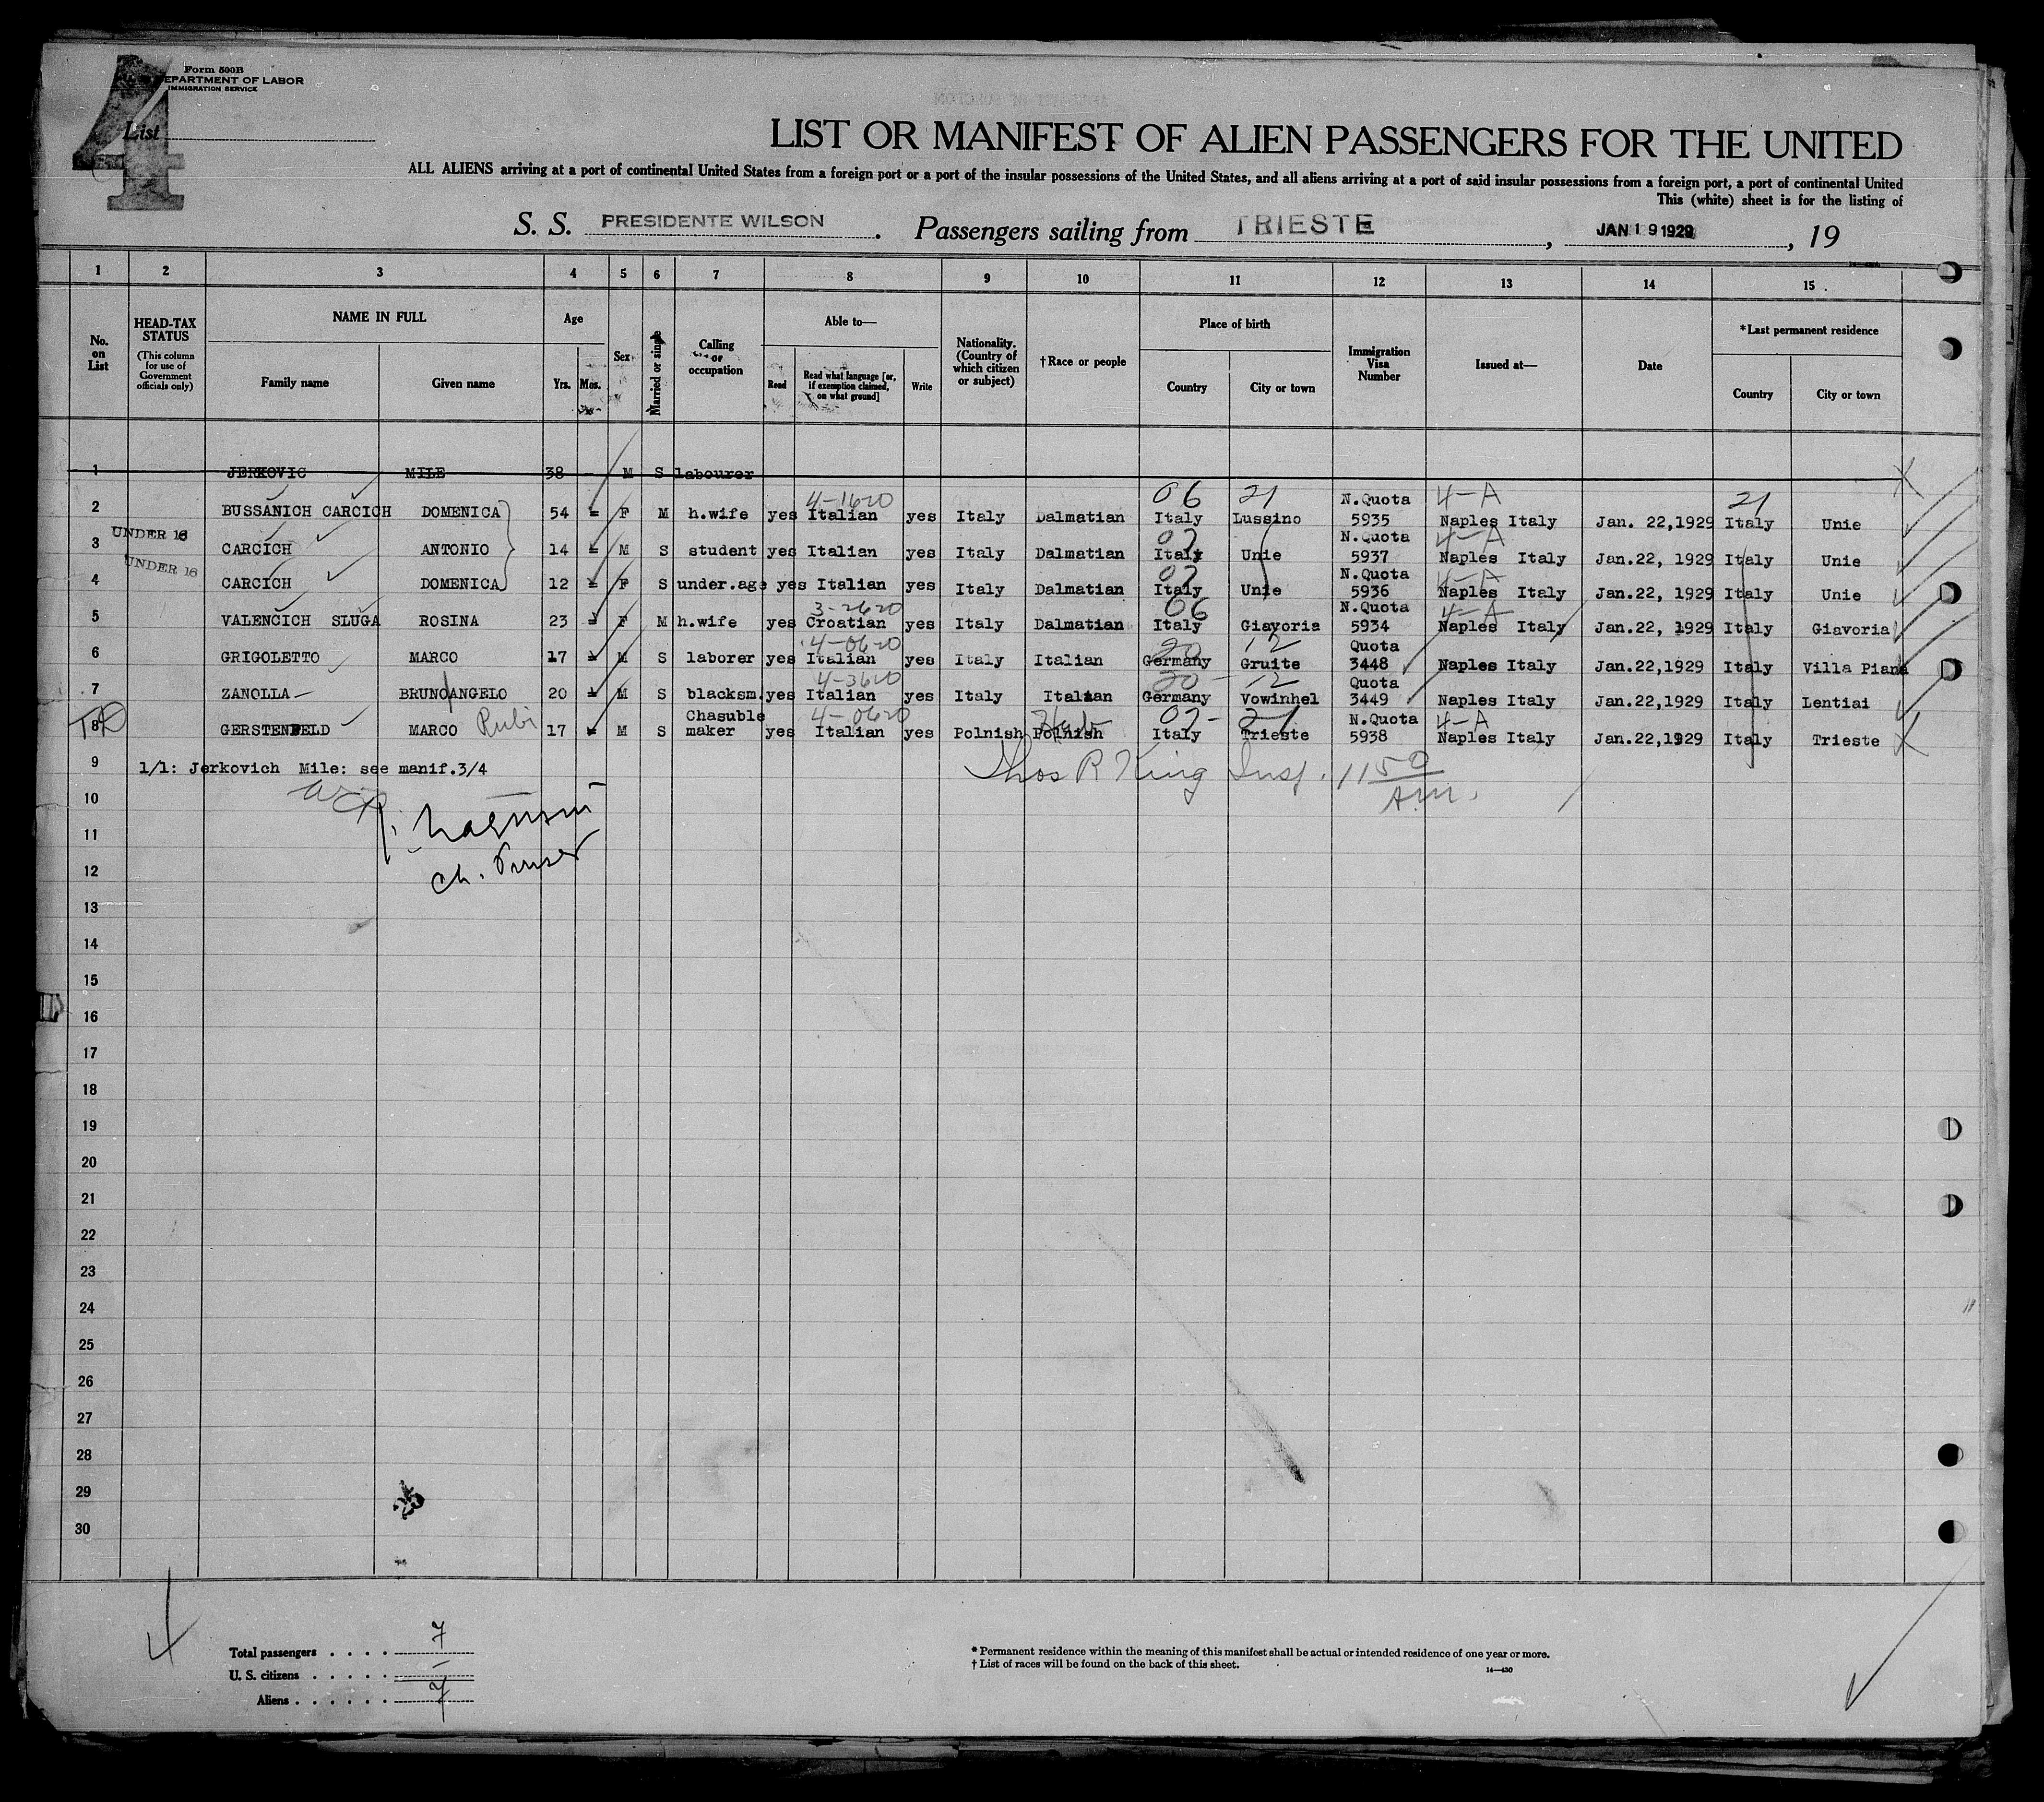 4
Form 500B
DEPARTMENT OF LABOR
IMMIGRATION SERVICE
List
LIST OR MANIFEST OF ALIEN PASSENGERS FOR THE UNITED
ALL ALIENS arriving at a port of continental United States from a foreign port or a port of the insular possessions of the United States, and all aliens arriving at a port of said insular possessions from a foreign port, a port of continental United
This (white) sheet is for the listing of
S. S. PRESIDENTE WILSON. Passengers sailing from TRIESTE, JAN 19 1929, 19
1 2 3 4 5 6 7 8 9 10 11 12 13 14 15
No. on List
HEAD-TAX STATUS (This column for use of Government officials only)
NAME IN FULL
Family name Given name
Age
Yrs. Mos.
Sex
Married or single
Calling or occupation
Able to—
Read Read what language [or, if exemption claimed, on what ground] Write
Nationality. (Country of which citizen or subject)
†Race or people
Place of birth
Country City or town
Immigration Visa Number
Issued at—
Date
*Last permanent residence
Country City or town
1 JERKOVIC MILE 38 M S labourer
4-1620 06 21 N.Quota 4-A 21
2 BUSSANICH CARCICH DOMENICA 54 - F M h.wife yes Italian yes Italy Dalmatian Italy Lussino 5935 Naples Italy Jan. 22,1929 Italy Unie
UNDER 16 N.Quota 4-A
3 CARCICH ANTONIO 14 - M S student yes Italian yes Italy Dalmatian Italy Unie 5937 Naples Italy Jan.22, 1929 Italy Unie
UNDER 16 N.Quota 4-A
4 CARCICH DOMENICA 12 - F S under.age yes Italian yes Italy Dalmatian Italy Unie 5936 Naples Italy Jan.22, 1929 Italy Unie
3-2620 06 N.Quota 4-A
5 VALENCICH SLUGA ROSINA 23 - F M h.wife yes Croatian yes Italy Dalmatian Italy Giavoria 5934 Naples Italy Jan.22, 1929 Italy Giavoria
4-0620 20 12 Quota
6 GRIGOLETTO MARCO 17 - M S laborer yes Italian yes Italy Italian Germany Gruite 3448 Naples Italy Jan.22,1929 Italy Villa Piana
4-3620 20 - 12 Quota
7 ZANOLLA BRUNO ANGELO 20 - M S blacksm. yes Italian yes Italy Italian Germany Vowinhel 3449 Naples Italy Jan.22,1929 Italy Lentiai
Chasuble 4-0620 Heb 07- 21 N.Quota 4-A
8 GERSTENFELD MARCO Rubi 17 - M S maker yes Italian yes Polnish Polnish Italy Trieste 5938 Naples Italy Jan.22,1929 Italy Trieste
9 1/1: Jerkovich Mile: see manif.3/4 Thos R King Insp. 11 50 AM.
10
11
ch. Purser
12
13
14
15
16
17
18
19
20
21
22
23
24
25
26
27
28
29
30
4
Total passengers . . . . 7
U. S. citizens . . . . . -
Aliens . . . . . . 7
* Permanent residence within the meaning of this manifest shall be actual or intended residence of one year or more.
† List of races will be found on the back of this sheet.
14—430